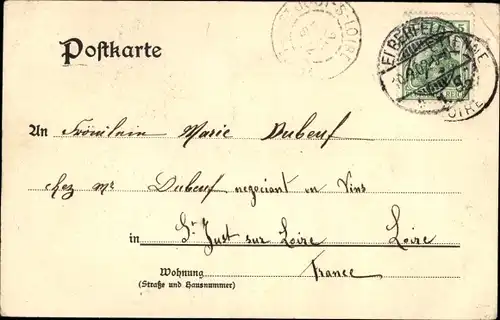 ST JUST-S-LOIRE
ELBERFELD
5
LOIRE
Postkarte
An Fräulein Marie Dubeuf
chez Mr Dubeuf négociant en Vins
in St Just sur Loire Loire
Wohnung France
(Straße und Hausnummer)